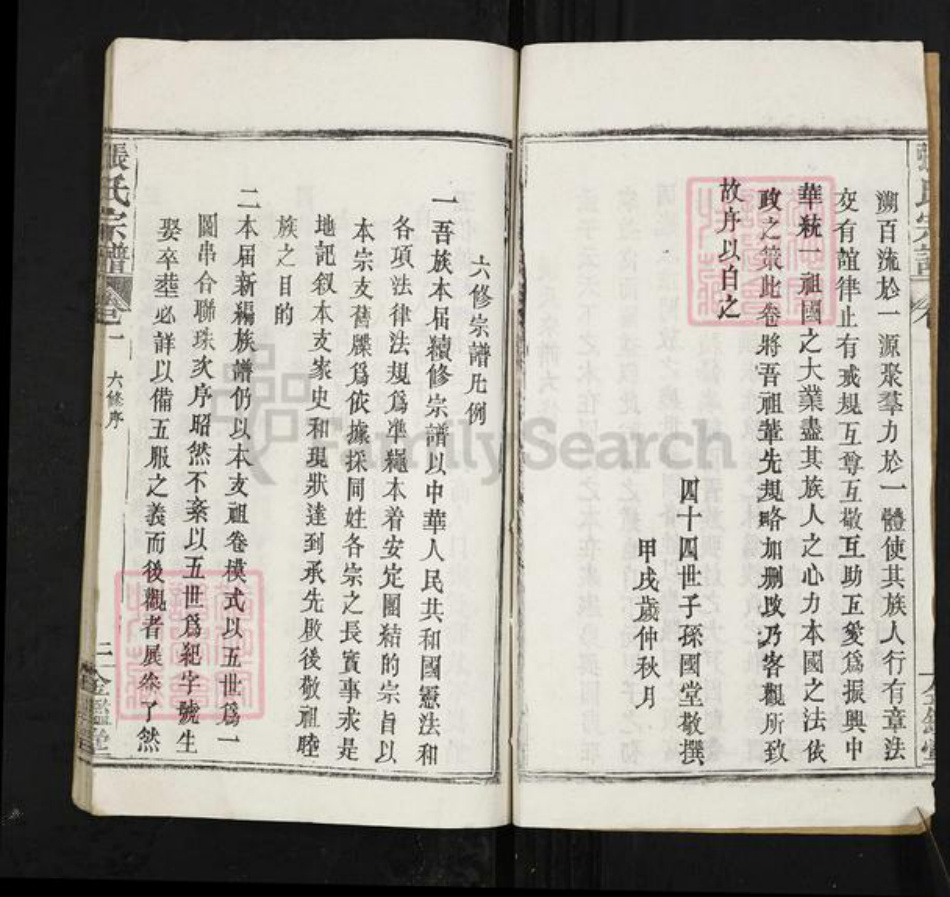 溯百流於一源聚羣力於一體使其族人行有章法
交有誼律止有戒規互尊互敬互助互愛爲振興中
華統一祖國之大業盡其族人之心力本國之法依
政之策此卷將吾祖輩先規略加删改乃客觀所致
故序以自之
四十四世子孫國堂敬撰
甲戌歲仲秋月
六修宗譜凡例
一吾族本届續修宗譜以中華人民共和國憲法和
各項法律法規爲准繩本着安定團結的宗旨以
本宗支舊牒爲依據採同姓各宗之長實事求是
地記叙本支家史和現狀達到承先啟後敬祖睦
族之目的
二本届新編族譜仍以本支祖卷模式以五世爲一
圖串合聯珠次序昭然不紊以五世爲紀字號生
娶卒塟必詳以備五服之義而後觀者展叅了然
張氏宗譜
卷一
六修序
二
金鑑堂
FamilySearch